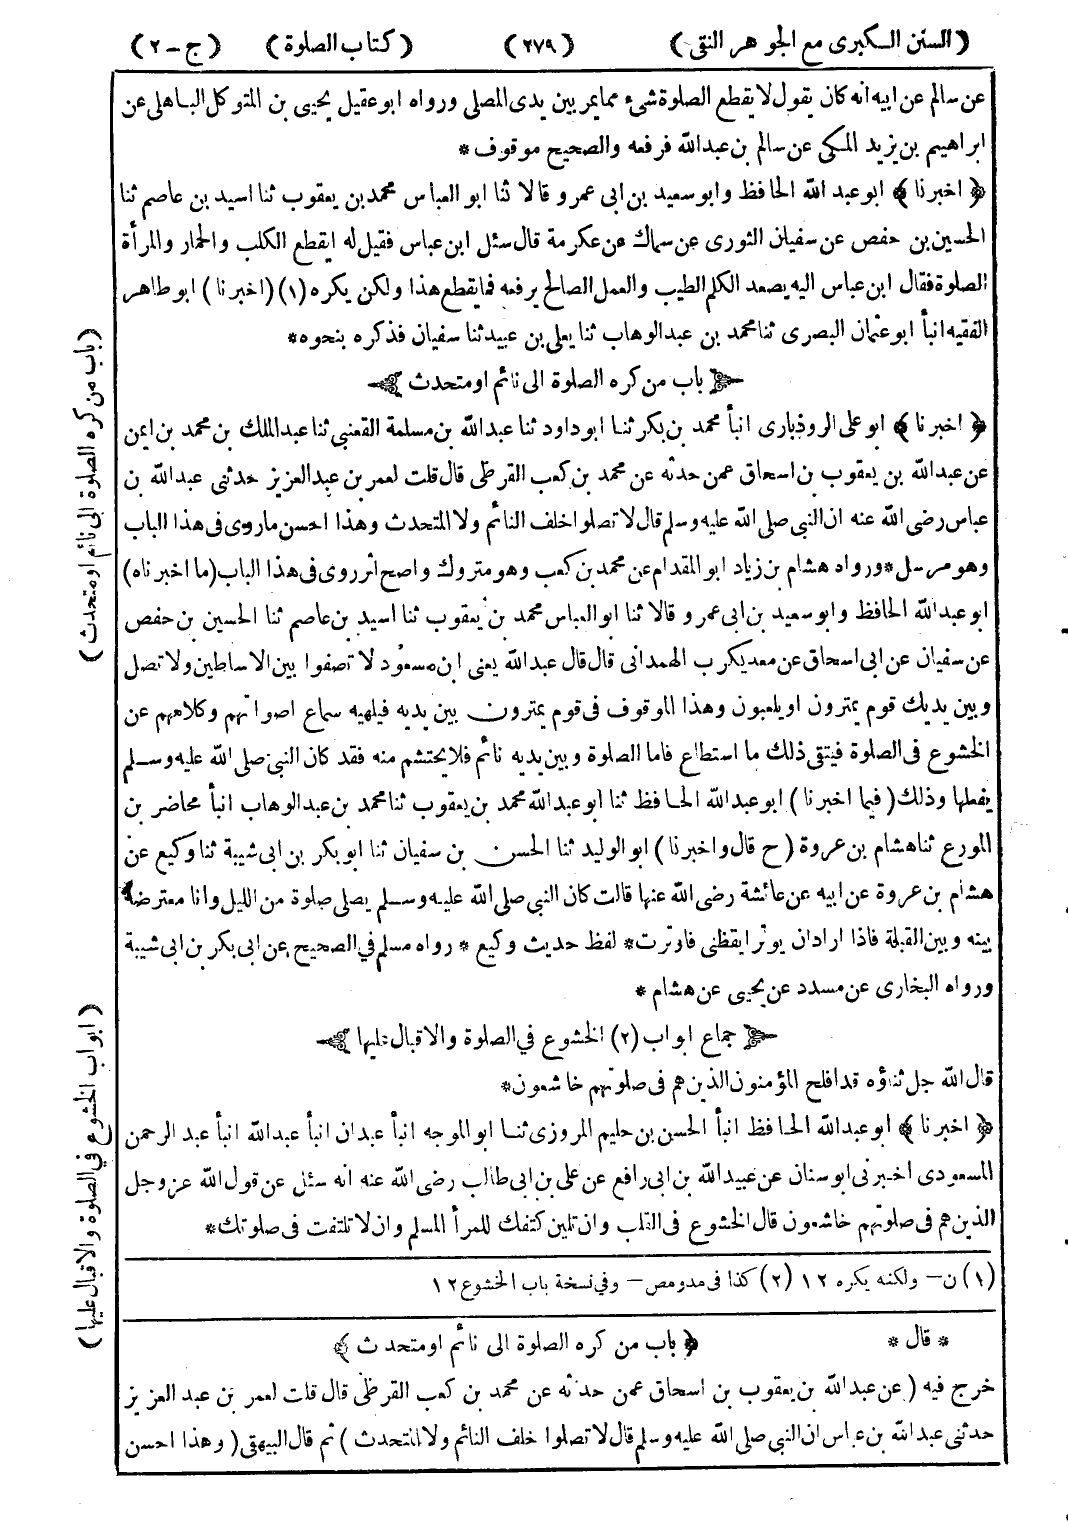 (السنن الكبرى مع الجوهر النقى) (٢٧٩) (كتاب الصلوة) (ج-٢)
عن سالم عن ابيه انه كان يقول لا يقطع الصلوة شىء مما يمر بين يدى المصلى ورواه ابو عقيل يحيى بن المتوكل الباهلى عن
ابراهيم بن يزيد المكى عن سالم بن عبدالله فرفعه والصحيح موقوف *
﴿ اخبرنا ﴾ ابو عبد الله الحافظ وابو سعيد بن ابى عمرو قالا ثنا ابو العباس محمد بن يعقوب ثنا اسيد بن عاصم ثنا
الحسين بن حفص عن سفيان الثورى عن سماك عن عكرمة قال سئل ابن عباس فقيل له ايقطع الكلب والحمار والمرأة
الصلوة فقال ابن عباس اليه يصعد الكلم الطيب والعمل الصالح يرفعه فما يقطع هذا ولكن يكره (١) (اخبرنا) ابو طاهر
الفقيه انبأ ابو عثمان البصرى ثنا محمد بن عبدالوهاب ثنا يعلى بن عبيد ثنا سفيان فذكره بنحوه *
باب من كره الصلوة الى نائم او متحدث
﴿ اخبرنا ﴾ ابو على الروذبارى انبأ محمد بن بكر ثنا ابو داود ثنا عبدالله بن مسلمة القعنبى ثنا عبدالملك بن محمد بن ايمن
عن عبدالله بن يعقوب بن اسحاق عمن حدثه عن محمد بن كعب القرظى قال قلت لعمر بن عبدالعزيز حدثنى عبدالله بن
عباس رضى الله عنه ان النبى صلى الله عليه وسلم قال لا تصلوا خلف النائم ولا المتحدث وهذا احسن ما روى فى هذا الباب
وهو مرسل * ورواه هشام بن زياد ابو المقدام عن محمد بن كعب وهو متروك واصح أثر روى فى هذا الباب (ما اخبرناه)
ابو عبدالله الحافظ وابو سعيد بن ابى عمرو قالا ثنا ابو العباس محمد بن يعقوب ثنا اسيد بن عاصم ثنا الحسين بن حفص
عن سفيان عن ابى اسحاق عن معديكرب الهمدانى قال قال عبدالله يعنى ابن مسعود لا تصفوا بين الاساطين ولا تصل
وبين يديك قوم يمترون او يلعبون وهذا الموقوف فى قوم يمترون بين يديه فيلهيه سماع اصواتهم وكلامهم عن
الخشوع فى الصلوة فيتقى ذلك ما استطاع فاما الصلوة وبين يديه نائم فلا يحتشم منه فقد كان النبى صلى الله عليه وسلم
يفعلها وذلك (فيما اخبرنا) ابو عبدالله الحافظ ثنا ابو عبدالله محمد بن يعقوب ثنا محمد بن عبدالوهاب انبأ محاضر بن
المورع ثنا هشام بن عروة (ح قال واخبرنا) ابو الوليد ثنا الحسن بن سفيان ثنا ابو بكر بن ابى شيبة ثنا وكيع عن
هشام بن عروة عن ابيه عن عائشة رضى الله عنها قالت كان النبى صلى الله عليه وسلم يصلى صلوة من الليل وانا معترضة
بينه وبين القبلة فاذا اراد ان يوتر ايقظنى فاوترت * لفظ حديث وكيع * رواه مسلم فى الصحيح عن ابى بكر بن ابى شيبة
ورواه البخارى عن مسدد عن يحيى عن هشام *
جماع ابواب (٢) الخشوع فى الصلوة والاقبال عليها
قال الله جل ثناؤه قد افلح المؤمنون الذين هم فى صلوتهم خاشعون *
﴿ اخبرنا ﴾ ابو عبدالله الحافظ انبأ الحسن بن حليم المروزى ثنا ابو الموجه انبأ عبدان انبأ عبدالله انبأ عبد الرحمن
المسعودى اخبرنى ابو سنان عن عبيدالله بن ابى رافع عن على بن ابى طالب رضى الله عنه انه سئل عن قول الله عز وجل
الذين هم فى صلوتهم خاشعون قال الخشوع فى القلب وان تلين كتفك للمرأ المسلم وان لا تلتفت فى صلوتك *
(١) ن - ولكنه يكره ١٢ (٢) كذا فى مد ومص - وفى نسخة باب الخشوع ١٢
* قال * ﴿ باب من كره الصلوة الى نائم او متحدث ﴾
خرج فيه (عن عبدالله بن يعقوب بن اسحاق عمن حدثه عن محمد بن كعب القرظى قال قلت لعمر بن عبد العزيز
حدثنى عبدالله بن عباس ان النبى صلى الله عليه وسلم قال لا تصلوا خلف النائم ولا المتحدث) ثم قال البيهقى (وهذا احسن
(باب من كره الصلوة الى نائم او متحدث)
(ابواب الخشوع فى الصلوة والاقبال عليها)